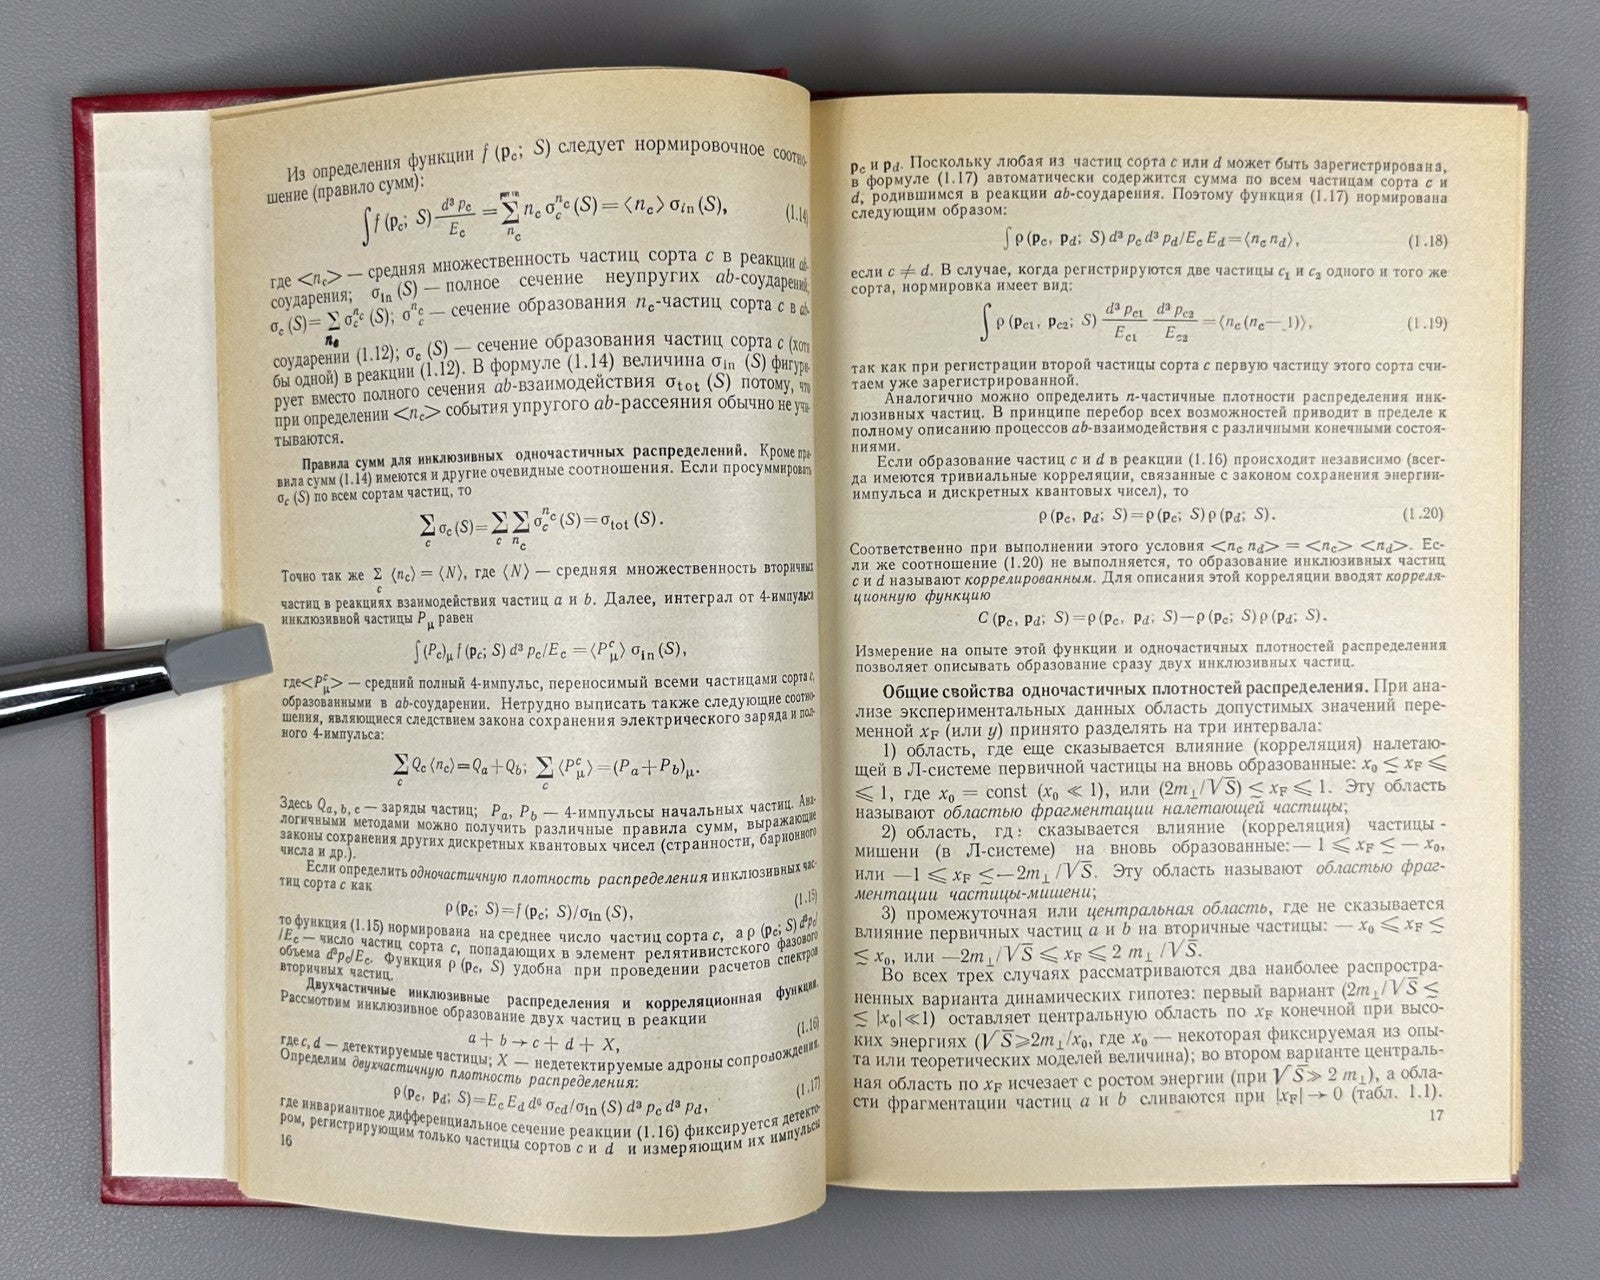 Из определения функции f (p_c; S) следует нормировочное соотно-
шение (правило сумм):
∫ f (p_c; S) d³p_c/E_c = Σ_{n_c} n_c σ_c^{n_c} (S) = ⟨n_c⟩ σ_in (S), (1.14)
где <n_c> — средняя множественность частиц сорта c в реакции ab-
соударения; σ_in (S) — полное сечение неупругих ab-соударений;
σ_c (S)= Σ_{n_c} σ_c^{n_c} (S); σ_c^{n_c} — сечение образования n_c-частиц сорта c в ab-
соударении (1.12); σ_c (S) — сечение образования частиц сорта c (хотя
бы одной) в реакции (1.12). В формуле (1.14) величина σ_in (S) фигури-
рует вместо полного сечения ab-взаимодействия σ_tot (S) потому, что
при определении <n_c> события упругого ab-рассеяния обычно не учи-
тываются.
Правила сумм для инклюзивных одночастичных распределений. Кроме пра-
вила сумм (1.14) имеются и другие очевидные соотношения. Если просуммировать
σ_c (S) по всем сортам частиц, то
Σ_c σ_c (S)= Σ_c Σ_{n_c} σ_c^{n_c} (S)=σ_tot (S).
Точно так же Σ_c ⟨n_c⟩ = ⟨N⟩, где ⟨N⟩ — средняя множественность вторичных
частиц в реакциях взаимодействия частиц a и b. Далее, интеграл от 4-импульса
инклюзивной частицы P_μ равен
∫ (P_c)_μ f (p_c; S) d³ p_c/E_c = ⟨P_μ^c⟩ σ_in (S),
где<P_μ^c> — средний полный 4-импульс, переносимый всеми частицами сорта c,
образованными в ab-соударении. Нетрудно выписать также следующие соотно-
шения, являющиеся следствием закона сохранения электрического заряда и пол-
ного 4-импульса:
Σ_c Q_c ⟨n_c⟩=Q_a+Q_b; Σ_c ⟨P_μ^c⟩=(P_a+P_b)_μ.
Здесь Q_{a, b, c} — заряды частиц; P_a, P_b — 4-импульсы начальных частиц. Ана-
логичными методами можно получить различные правила сумм, выражающие
законы сохранения других дискретных квантовых чисел (странности, барионного
числа и др.).
Если определить одночастичную плотность распределения инклюзивных час-
тиц сорта c как
ρ (p_c; S)=f (p_c; S)/σ_in (S), (1.15)
то функция (1.15) нормирована на среднее число частиц сорта c, а ρ (p_c; S) d³p_c/
/E_c — число частиц сорта c, попадающих в элемент релятивистского фазового
объема d³p_c/E_c. Функция ρ (p_c, S) удобна при проведении расчетов спектров
вторичных частиц.
Двухчастичные инклюзивные распределения и корреляционная функция.
Рассмотрим инклюзивное образование двух частиц в реакции
a + b → c + d + X, (1.16)
где c, d — детектируемые частицы; X — недетектируемые адроны сопровождения.
Определим двухчастичную плотность распределения:
ρ (p_c, p_d; S)=E_c E_d d⁶ σ_cd/σ_in (S) d³ p_c d³ p_d, (1.17)
где инвариантное дифференциальное сечение реакции (1.16) фиксируется детекто-
ром, регистрирующим только частицы сортов c и d и измеряющим их импульсы
16
p_c и p_d. Поскольку любая из частиц сорта c или d может быть зарегистрирована,
в формуле (1.17) автоматически содержится сумма по всем частицам сорта c и
d, родившимся в реакции ab-соударения. Поэтому функция (1.17) нормирована
следующим образом:
∫ ρ (p_c, p_d; S) d³ p_c d³ p_d/E_c E_d=⟨n_c n_d⟩, (1.18)
если c ≠ d. В случае, когда регистрируются две частицы c₁ и c₂ одного и того же
сорта, нормировка имеет вид:
∫ ρ (p_c1, p_c2; S) d³ p_c1/E_c1 d³ p_c2/E_c2 =⟨n_c (n_c—1)⟩, (1.19)
так как при регистрации второй частицы сорта c первую частицу этого сорта счи-
таем уже зарегистрированной.
Аналогично можно определить n-частичные плотности распределения инк-
люзивных частиц. В принципе перебор всех возможностей приводит в пределе к
полному описанию процессов ab-взаимодействия с различными конечными состоя-
ниями.
Если образование частиц c и d в реакции (1.16) происходит независимо (всег-
да имеются тривиальные корреляции, связанные с законом сохранения энергии-
импульса и дискретных квантовых чисел), то
ρ (p_c, p_d; S)=ρ (p_c; S) ρ (p_d; S). (1.20)
Соответственно при выполнении этого условия <n_c n_d> = <n_c> <n_d>. Ес-
ли же соотношение (1.20) не выполняется, то образование инклюзивных частиц
c и d называют коррелированным. Для описания этой корреляции вводят корреля-
ционную функцию
C (p_c, p_d; S)=ρ (p_c, p_d; S)—ρ (p_c; S) ρ (p_d; S).
Измерение на опыте этой функции и одночастичных плотностей распределения
позволяет описывать образование сразу двух инклюзивных частиц.
Общие свойства одночастичных плотностей распределения. При ана-
лизе экспериментальных данных область допустимых значений пере-
менной x_F (или y) принято разделять на три интервала:
1) область, где еще сказывается влияние (корреляция) налетаю-
щей в Л-системе первичной частицы на вновь образованные: x₀ ≲ x_F ⩽
⩽ 1, где x₀ = const (x₀ ≪ 1), или (2m_⊥/√S) ≲ x_F ⩽ 1. Эту область
называют областью фрагментации налетающей частицы;
2) область, гд: сказывается влияние (корреляция) частицы -
мишени (в Л-системе) на вновь образованные: — 1 ⩽ x_F ≲ — x₀,
или —1 ⩽ x_F ≲—2m_⊥/√S. Эту область называют областью фраг-
ментации частицы-мишени;
3) промежуточная или центральная область, где не сказывается
влияние первичных частиц a и b на вторичные частицы: — x₀ ⩽ x_F ≲
≲ x₀, или —2m_⊥/√S ⩽ x_F ⩽ 2 m_⊥ /√S.
Во всех трех случаях рассматриваются два наиболее распростра-
ненных варианта динамических гипотез: первый вариант (2m_⊥/√S ≲
≲ |x₀|≪1) оставляет центральную область по x_F конечной при высо-
ких энергиях (√S⩾2m_⊥/x₀, где x₀ — некоторая фиксируемая из опы-
та или теоретических моделей величина); во втором варианте централь-
ная область по x_F исчезает с ростом энергии (при √S≫ 2 m_⊥), а обла-
сти фрагментации частиц a и b сливаются при |x_F| → 0 (табл. 1.1).
17